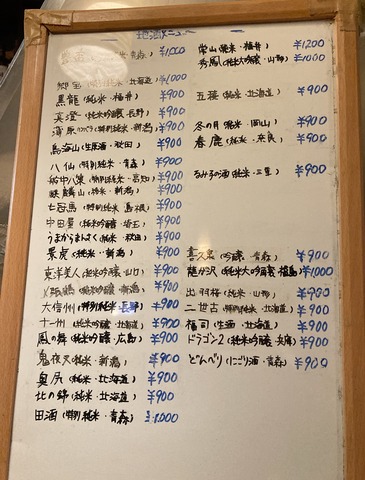 地酒メニュー
青森) ¥1,000
純米・北海道) ¥1000
黒龍 (純米・福井) ¥900
真澄 (純米吟醸・長野) ¥900
(特別純米・新潟) ¥900
鳥海山 (生原酒・秋田) ¥900
八仙 (特別純米・青森) ¥900
船中八策 (特別純米・高知) ¥900
鉄鱗山 (純米・新潟) ¥900
七冠馬 (特別純米・島根) ¥900
中田屋 (純米吟醸・埼玉) ¥900
うまからまんさく (純米・秋田) ¥900
景虎 (純米・新潟) ¥900
東洋美人 (純米吟醸・山口) ¥900
(特別純米・新潟) ¥900
大信州 (特別純米・長野) ¥900
十一州 (純米吟醸・北海道) ¥900
鳳の舞 (純米吟醸・広島) ¥900
鬼夜叉 (純米・新潟) ¥900
奥尻 (純米・北海道) ¥900
北の錦 (純米・北海道) ¥900
田酒 (特別純米・青森) ¥1,000
常山 (純米・福井) ¥1200
秀鳳 (純米大吟醸・山形) ¥1000
五稜 (純米・北海道) ¥900
冬の月 (純米・岡山) ¥900
春鹿 (純米・奈良) ¥900
るみ子の酒 (純米・三重) ¥900
喜久泉 (吟醸・青森) ¥900
(純米大吟醸・福島) ¥1000
出羽桜 (純米・山形) ¥900
二世古 (特別純米・北海道) ¥900
福司 (生酒・北海道) ¥900
ドラゴン2 (純米吟醸・兵庫) ¥900
どんぺり (にごり酒・青森) ¥900